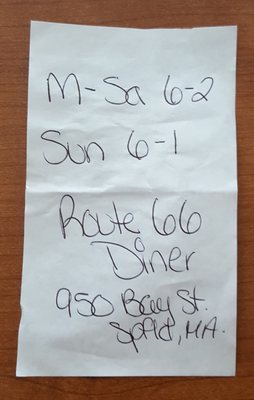 M-Sa 6-2
Sun 6-1
Route 66
Diner
950 Bay St.
Spfld, MA.